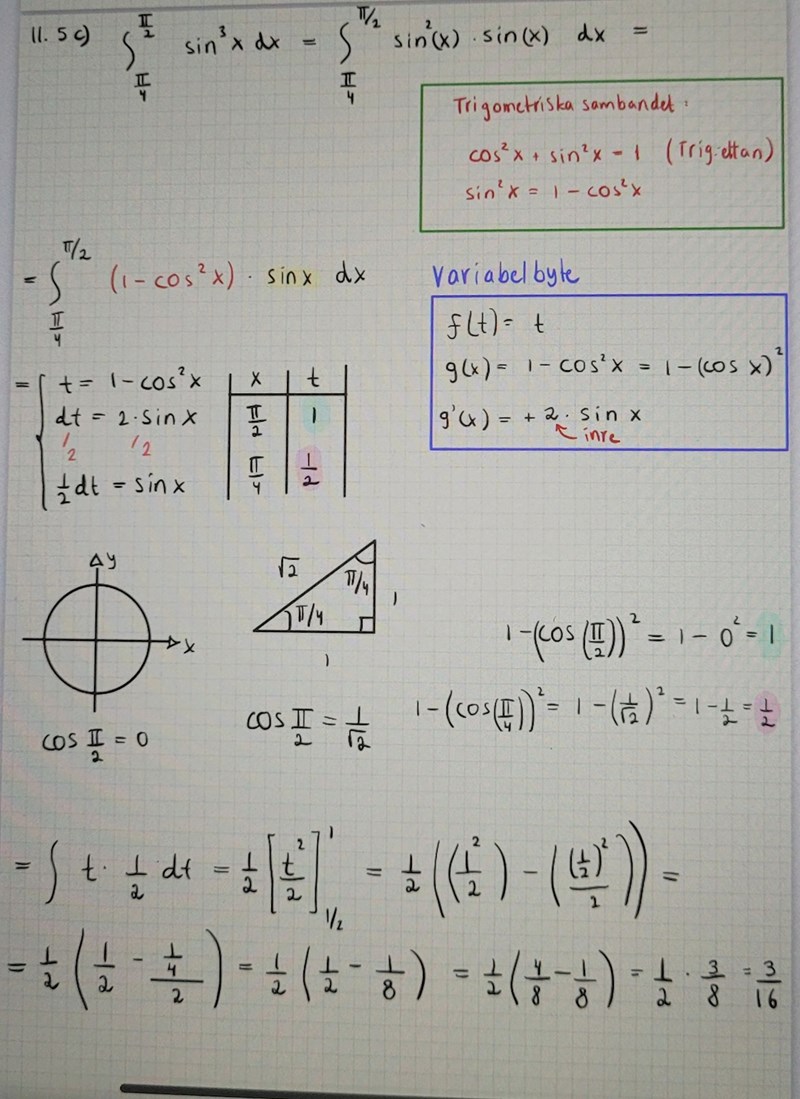 11. 5 c) ∫_{π/4}^{π/2} sin³x dx = ∫_{π/4}^{π/2} sin²(x) · sin(x) dx =
Trigometriska sambandet :
cos²x + sin²x = 1 (Trig.ettan)
sin²x = 1 - cos²x
= ∫_{π/4}^{π/2} (1 - cos²x) · sinx dx
Variabelbyte
f(t) = t
g(x) = 1 - cos²x = 1 - (cos x)²
g'(x) = + 2 · sin x
inre
= { t = 1 - cos²x | x | t |
dt = 2 · sin x | π/2 | 1 |
1/2 1/2
1/2 dt = sin x | π/4 | 1/2 |
y
x
cos π/2 = 0
√2
π/4
π/4
1
1
cos π/2 = 1/√2
1 - (cos(π/2))² = 1 - 0² = 1
1 - (cos(π/4))² = 1 - (1/√2)² = 1 - 1/2 = 1/2
= ∫ t · 1/2 dt = 1/2 [t²/2]_{1/2}^{1} = 1/2 ((1²/2) - ((1/2)²/2)) =
= 1/2 (1/2 - (1/4)/2) = 1/2 (1/2 - 1/8) = 1/2 (4/8 - 1/8) = 1/2 · 3/8 = 3/16